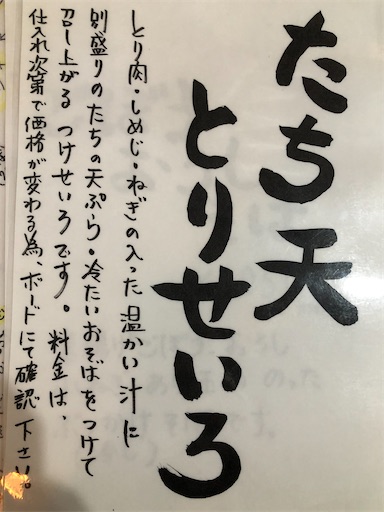 たち天
とりせいろ
とり肉・しめじ・ねぎの入った温かい汁に
別盛りのたちの天ぷら・冷たいおそばをつけて
召し上がるつけせいろです。料金は、
仕入れ次第で価格が変わる為、ボードにて確認下さい。